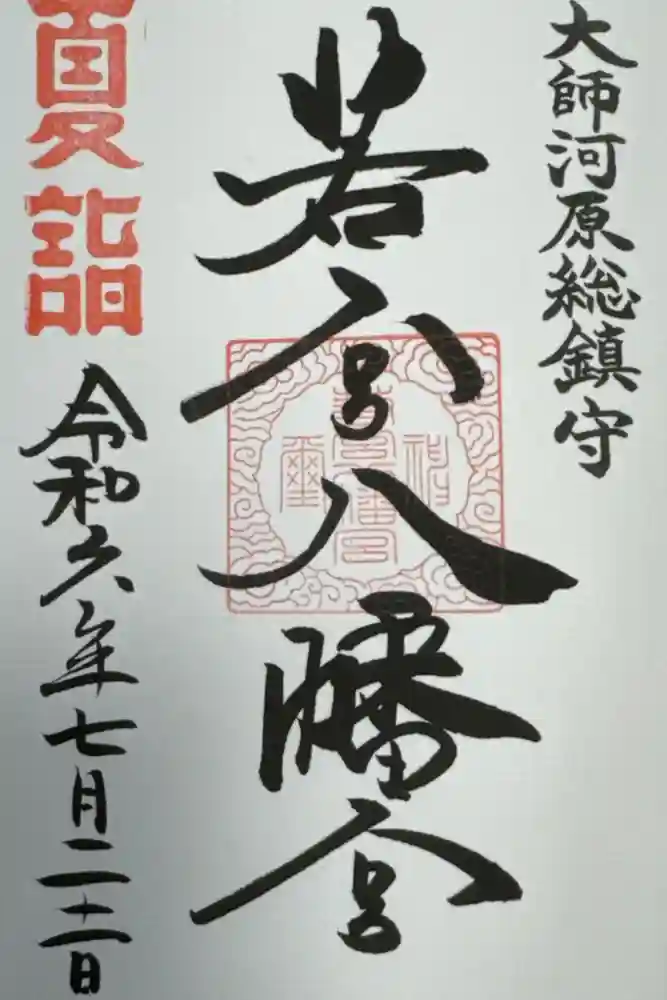 大師河原総鎮守
若宮八幡宮
夏詣
令和六年七月二十一日